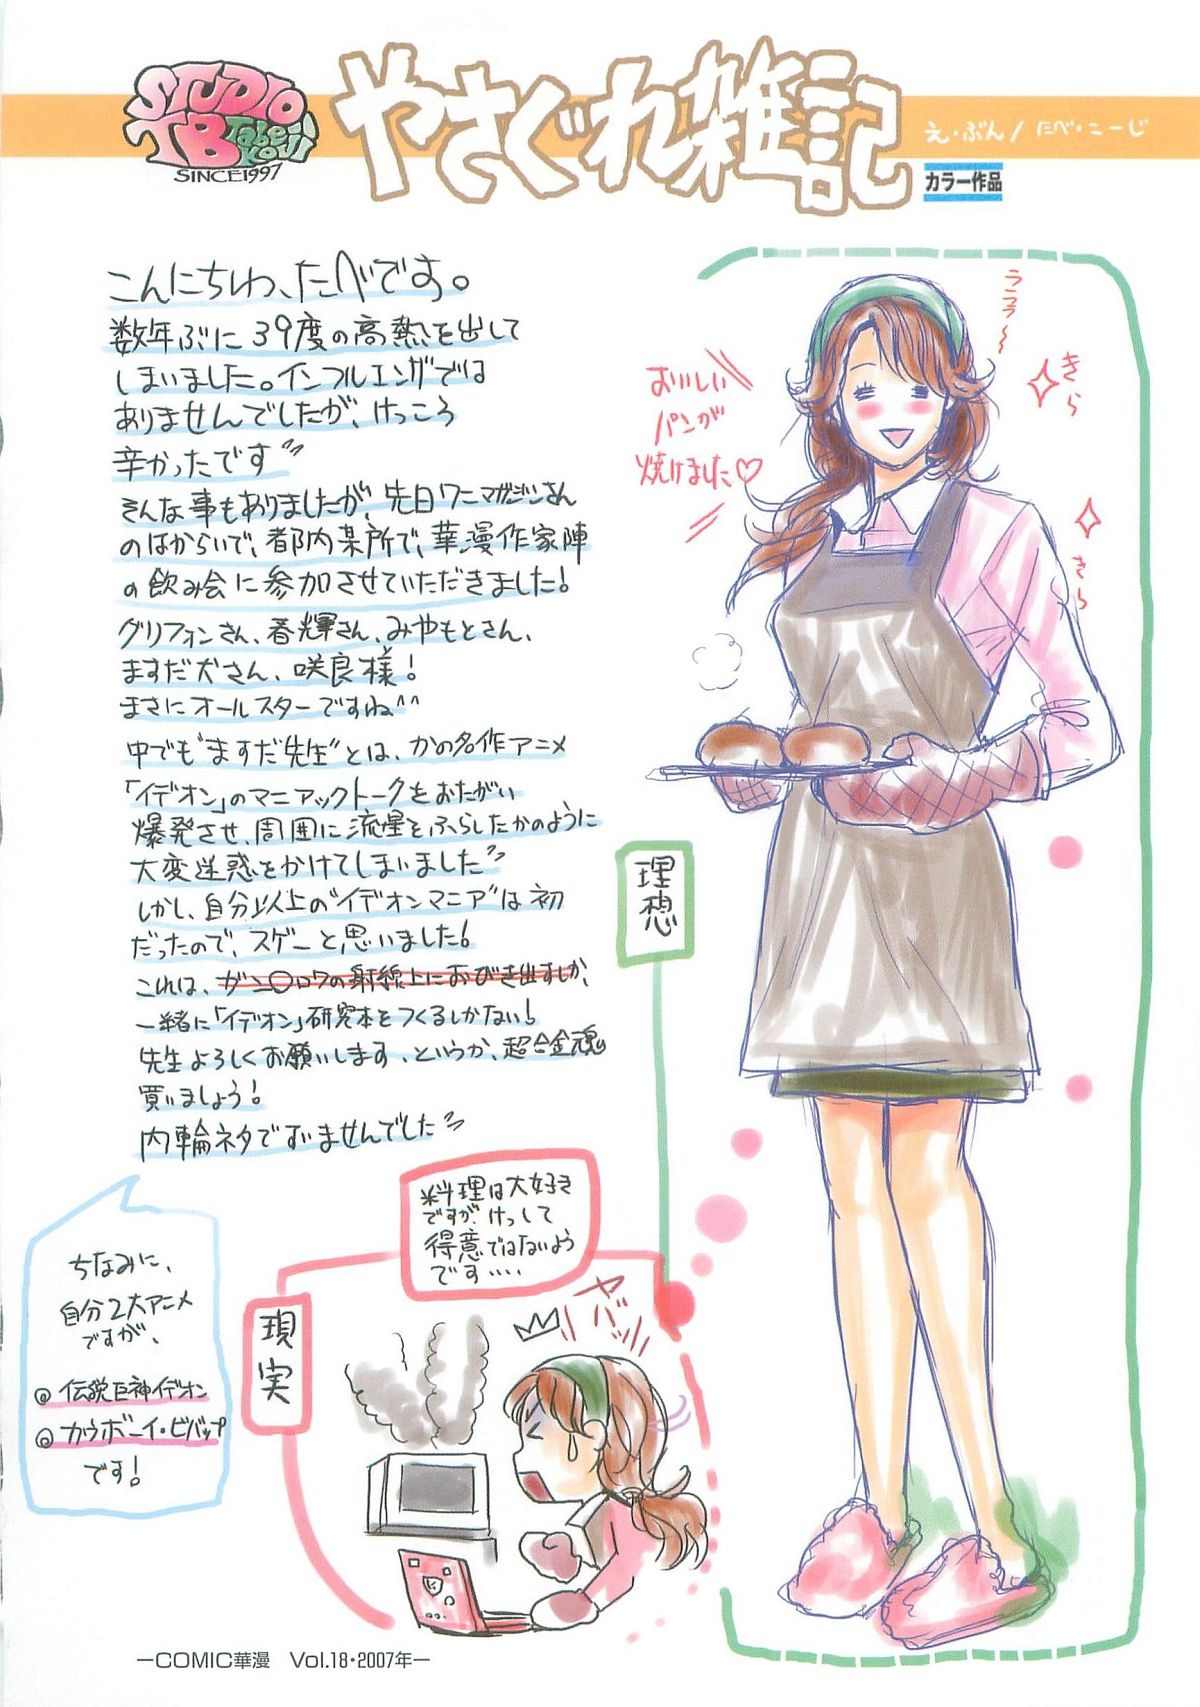 STUDIO
TB Tabe Koji
SINCE1997
やさぐれ雑記
え・ぶん/たべ・こーじ
カラー作品
こんにちわ、たべです。
数年ぶに39度の高熱を出して
しまいました。インフルエンザでは
ありませんでしたが、けっころ
辛かったです
そんな事もありましたが、先日ワニマガジンさん
のはからいで、都内某所で、華漫作家陣
の飲み会に参加させていただきました!
グリフォンさん、春輝さん、みやもとさん、
ますだ犬さん、咲良様!
まさにオールスターですね^^
中でも"ますだ先生"とは、かの名作アニメ
「イデオン」のマニアックトークをおたがい
爆発させ、周囲に流星をふらしたかのように
大変迷惑をかけてしまいました
しかし、自分以上の"イデオンマニア"は初
だったので、スゲーと思いました!
これは、ガン〇ロウの射線上におびき出すしか、
一緒に「イデオン」研究本をつくるしかない!
先生よろしくお願いします、というか、超合金魂
買いましょう!
内輪ネタですいませんでした
ちなみに、
自分2大アニメ
ですが、
◎伝説巨神イデオン
◎カウボーイ・ビバップ
です!
ララララ~
きら
きら
おいしい
パンが
焼けました♡
理想
料理は大好き
ですが、けっして
得意ではないよう
です・・・・
現実
ヤバッ
—COMIC華漫 Vol.18・2007年—